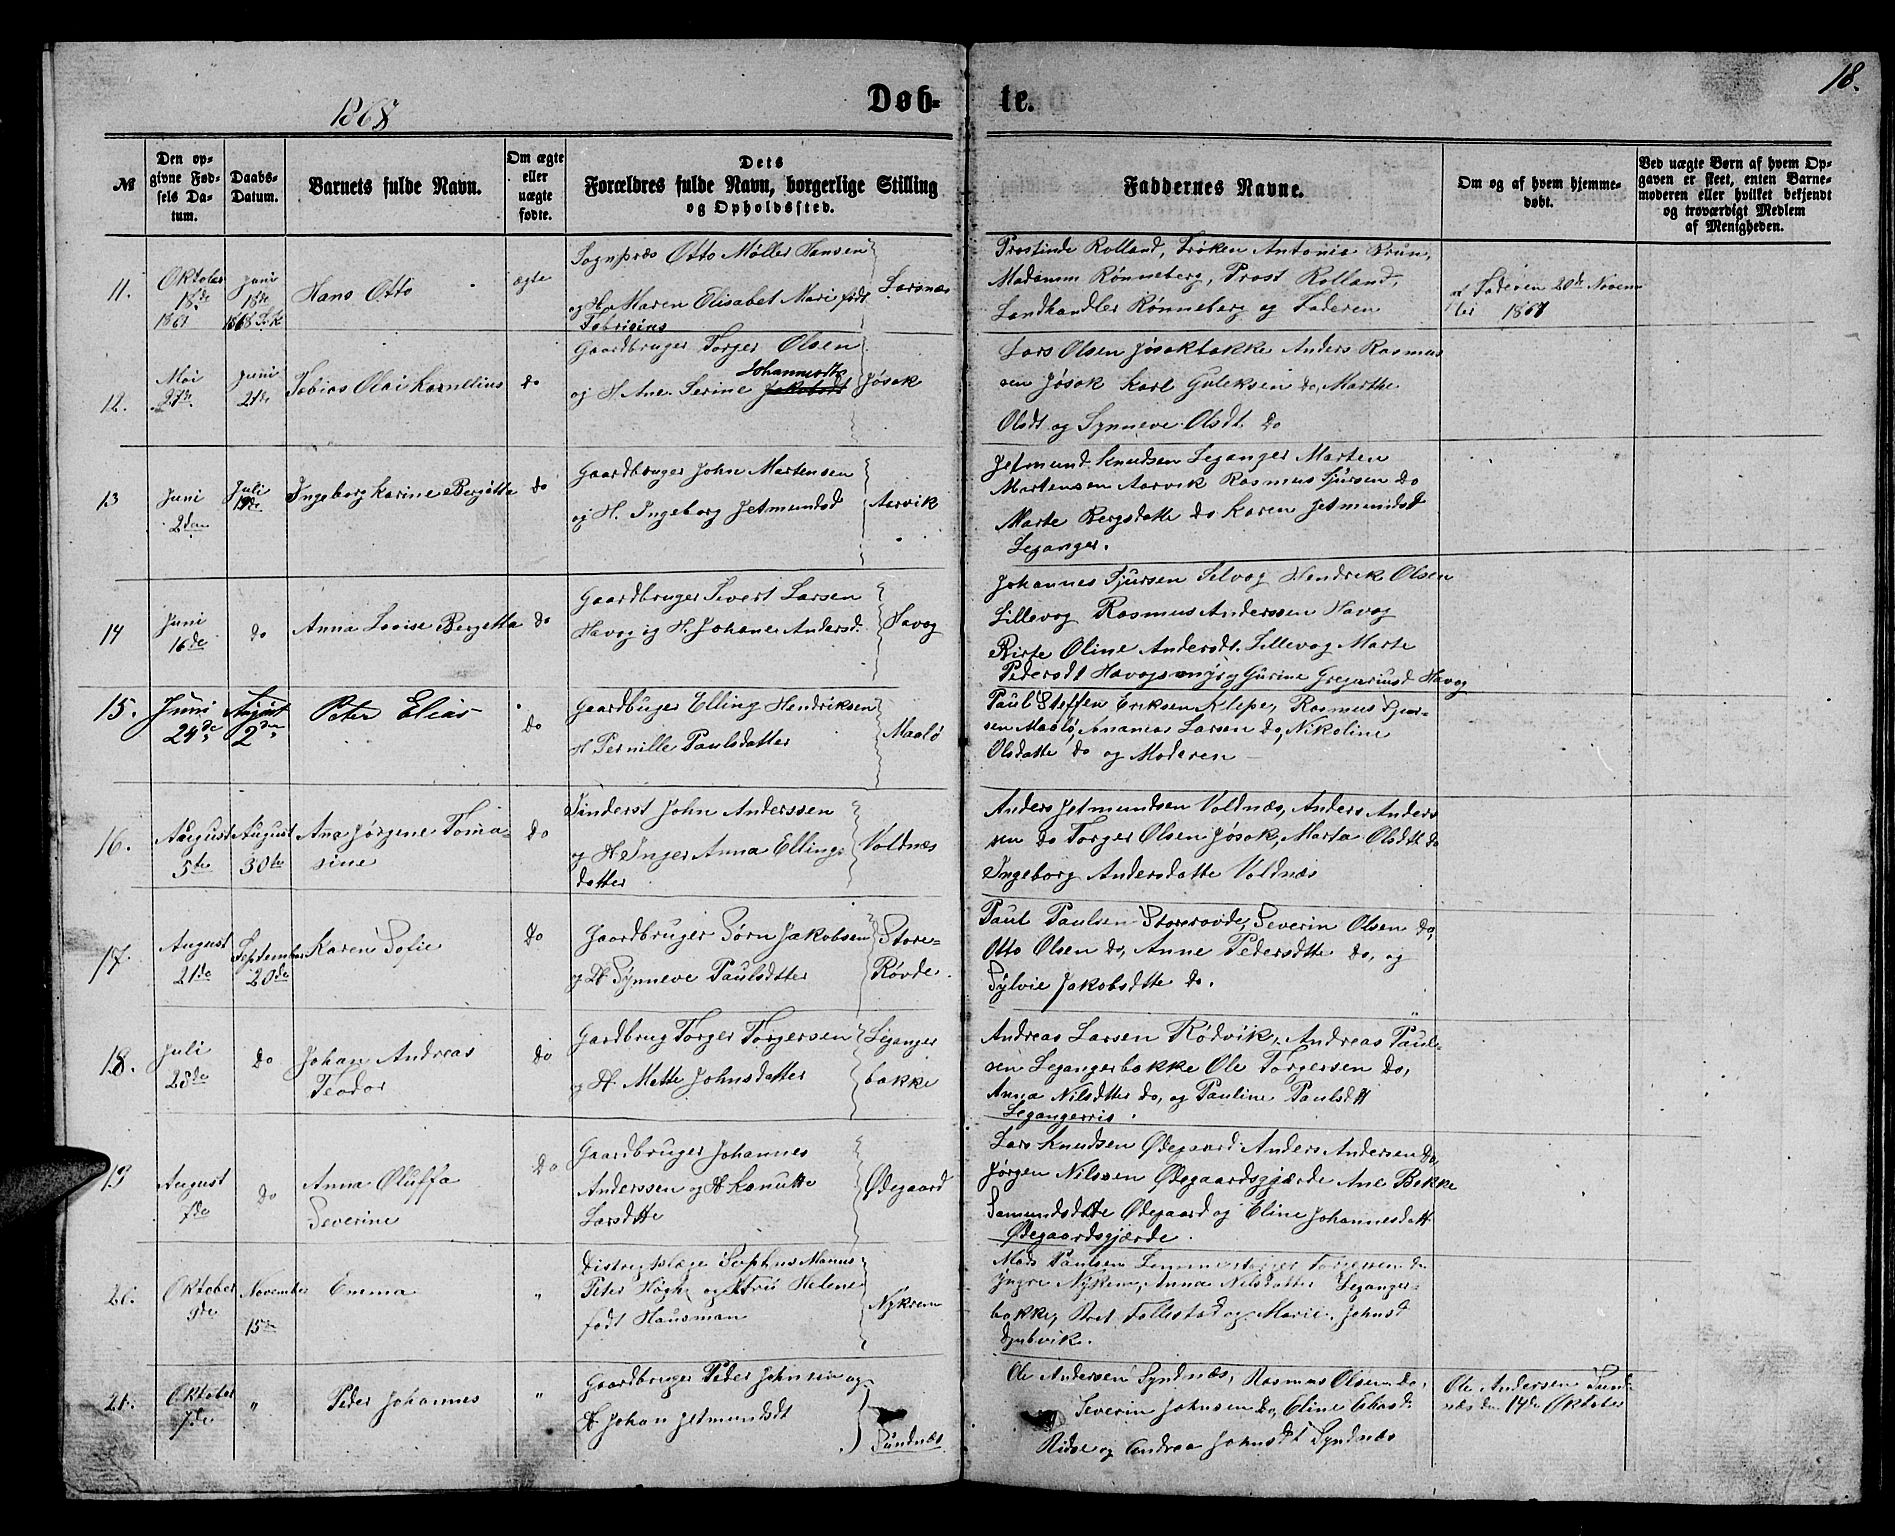 18.
1868
Døb-
te.
№
Den op-
givne Fød-
sels Da-
tum.
Daabs-
Datum.
Barnets fulde Navn.
Om ægte
eller
uægte
fødte.
Dets
Forældres fulde Navn, borgerlige Stilling
og Opholdssted.
Faddernes Navne.
Om og af hvem hjemme-
døbt.
Ved uægte Børn af hvem Op-
gaven er skeet, enten Barne-
moderen eller hvilket bekjendt
og troværdigt Medlem
af Menigheden.
11.
Oktober
18de
1867
Juni
18de
1868
Hans Otto
ægte
Sognpræs Otto Møller Hansen
og H Maren Elisabet Mari født
Fabricius
Larsnæs
Prostinde Rolland, Frøken Antonia Brun,
Madamm Rønneberg, Prost Rolland,
Landhandler Rønneberg og Faderen
Faderen 20de Novem
ber 1867
12.
Mai
27de
Juni
21de
Tobias Olai Kornelius
do
Gaardbruger Torger Olsen
og H. Ane Serine Jakobsdt Johannesdtr
Jøsok
Lars Olsen Jøsokbakke Anders Rasmus
sen Jøsok Karl Guleksen do, Marthe
Olsdt og Synneve Olsdt do
13
Juni
2den
Juli
19de
Ingeborg Karine Bergitta
do
Gaardbruger John Martensen
og H. Ingeborg Jetmundsd
Aarvik
Jetmund Knudsen Leganger Marten
Martensen Aarvik Rasmus Sjursen do
Marte Bergsdatte do Karen Jetmundsd
Leganger.
14
Juni
16de
do
Anna Lovise Bergetta
do
Gaardbruger Sivert Larsen
Havog og H. Johane Andersd.
Havog
Johannes Sjursen Selvog Hendrik Olsen
Lillevog Rasmus Anderssen Havog
Birte Oline Andersdt. Lillevog Marte
Pedersdt Havogsmyr og Gurine Gregoriusd Havog
15.
Juni
24de
August
2den
Peter Elias
do
Gaardbuger Elling Hendriksen
H Pernille Paulsdatter
Maalø
Paul Steffen Eriksen Klepe, Rasmus Sjur-
sen Maalø, Annamar Larsen do, Nikoline
Olsdatte do og Moderen
16.
August
5te
August
30te
Ana Jørgene Toma-
sine
do
Inderst John Anderssen
og H Inger Anna Ellings
datter
Voldnæs
Anders Jetmundsen Voldnæs, Anders Anders
sen do Torger Olsen Jøsok, Marta Olsdtt do
Ingeborg Andersdatte Voldnæs
17.
August
21de
September
20de
Karen Sofie
Do
Gaardbruger Sørn Jakobsen
og H Synneve Paulsdtter
Store-
Røvde
Paul Paulsen Storerovde, Severin Olsen do,
Otto Olsen do, Anne Pedersdtte do, og
Sylvie Jakobsdtte do.
18.
Juli
28de
do
Johan Andreas
Teodor
do
Gardbrug Torger Torgersen
og H. Mette Johnsdatter
Leganger
bakke
Andreas Larsen Rødvik, Andreas Paul-
sen Legangerbakke Ole Torgersen do,
Anna Nilsdtter do, og Pauline Paulsdtt
Legangerris.
19
August
7de
do
Anna Oluffa
Severine
Do
Gaardbruger Johannes
Anderssen og H Kanutte
Larsdtte
Ødegaard
Lars Knudsen Ødegaard Anders Andersen do,
Jørgen Nilssen Ødegaardsgjærde Ane Bekke
Samundsdtte Ødegaard og Eline Johannesdatt
Ødegaardsgjærde.
20.
Oktober
9de
November
15de
Emma
"
Distrigtslæge Sophus Manus
Peter Høgh og Fru Helene
født Hausman
Nykrem
Mads Paulsen
Yngre Nykrem, Anna Nilsdatter Leganger-
bakke, Bret Follestad og Marie Johnsd
Djubvik.
21.
Oktober
7de
"
Peder Johannes
"
Gaardbruger Peder Johnsen og
H Johan Jetmundsdt
Sundnæs
Ole Andersen Syndnæs, Rasmus Olsen do,
Severin Johnsen do, Eline
og Andrea Johnsdt Syndnæs
Ole Andersen Sund
næs den 14de Oktober